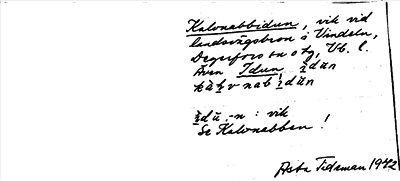 Kalvnabbidun, vik vid
landsvägsbron å Vindeln,
Degerfors sn o tg, Vb. l.
Även Idun

: vik
Se Kalvnabben!
Asta Tideman 1942